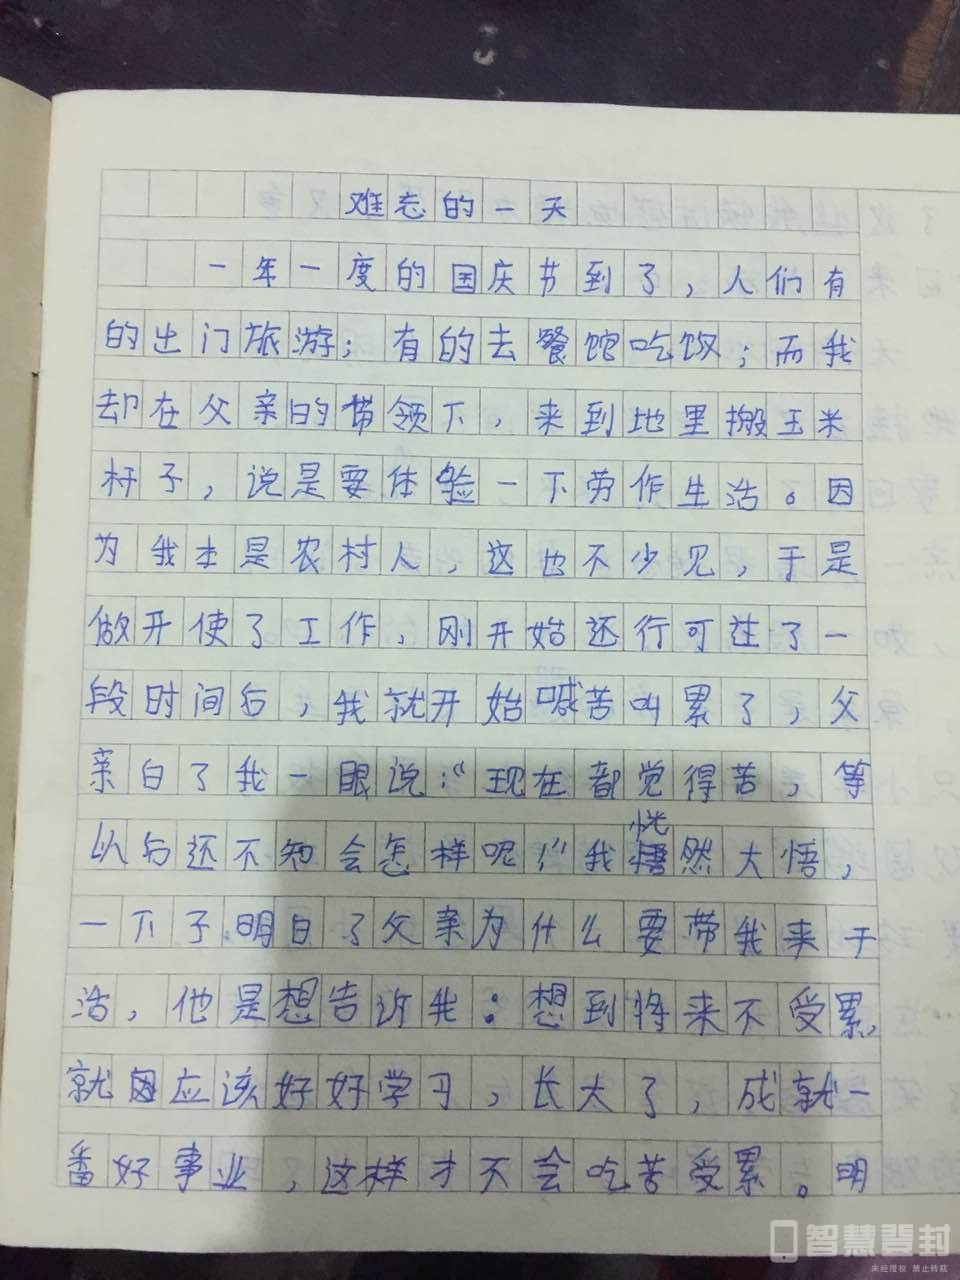 难忘的一天
一年一度的国庆节到了，人们有
的出门旅游；有的去餐馆吃饭；而我
却在父亲的带领下，来到地里搬玉米
杆子，说是要体验一下劳作生活。因
为我本是农村人，这也不少见，于是
做开使了工作，刚开始还行可过了一
段时间后，我就开始喊苦叫累了，父
亲白了我一眼说：“现在都觉得苦，等
以后还不知会怎样呢！”我恍然大悟，
一下子明白了父亲为什么要带我来干
活，他是想告诉我：想到将来不受累，
就因应该好好学习，长大了，成就一
番好事业，这样才不会吃苦受累。明
智慧登封
未经授权 禁止转载